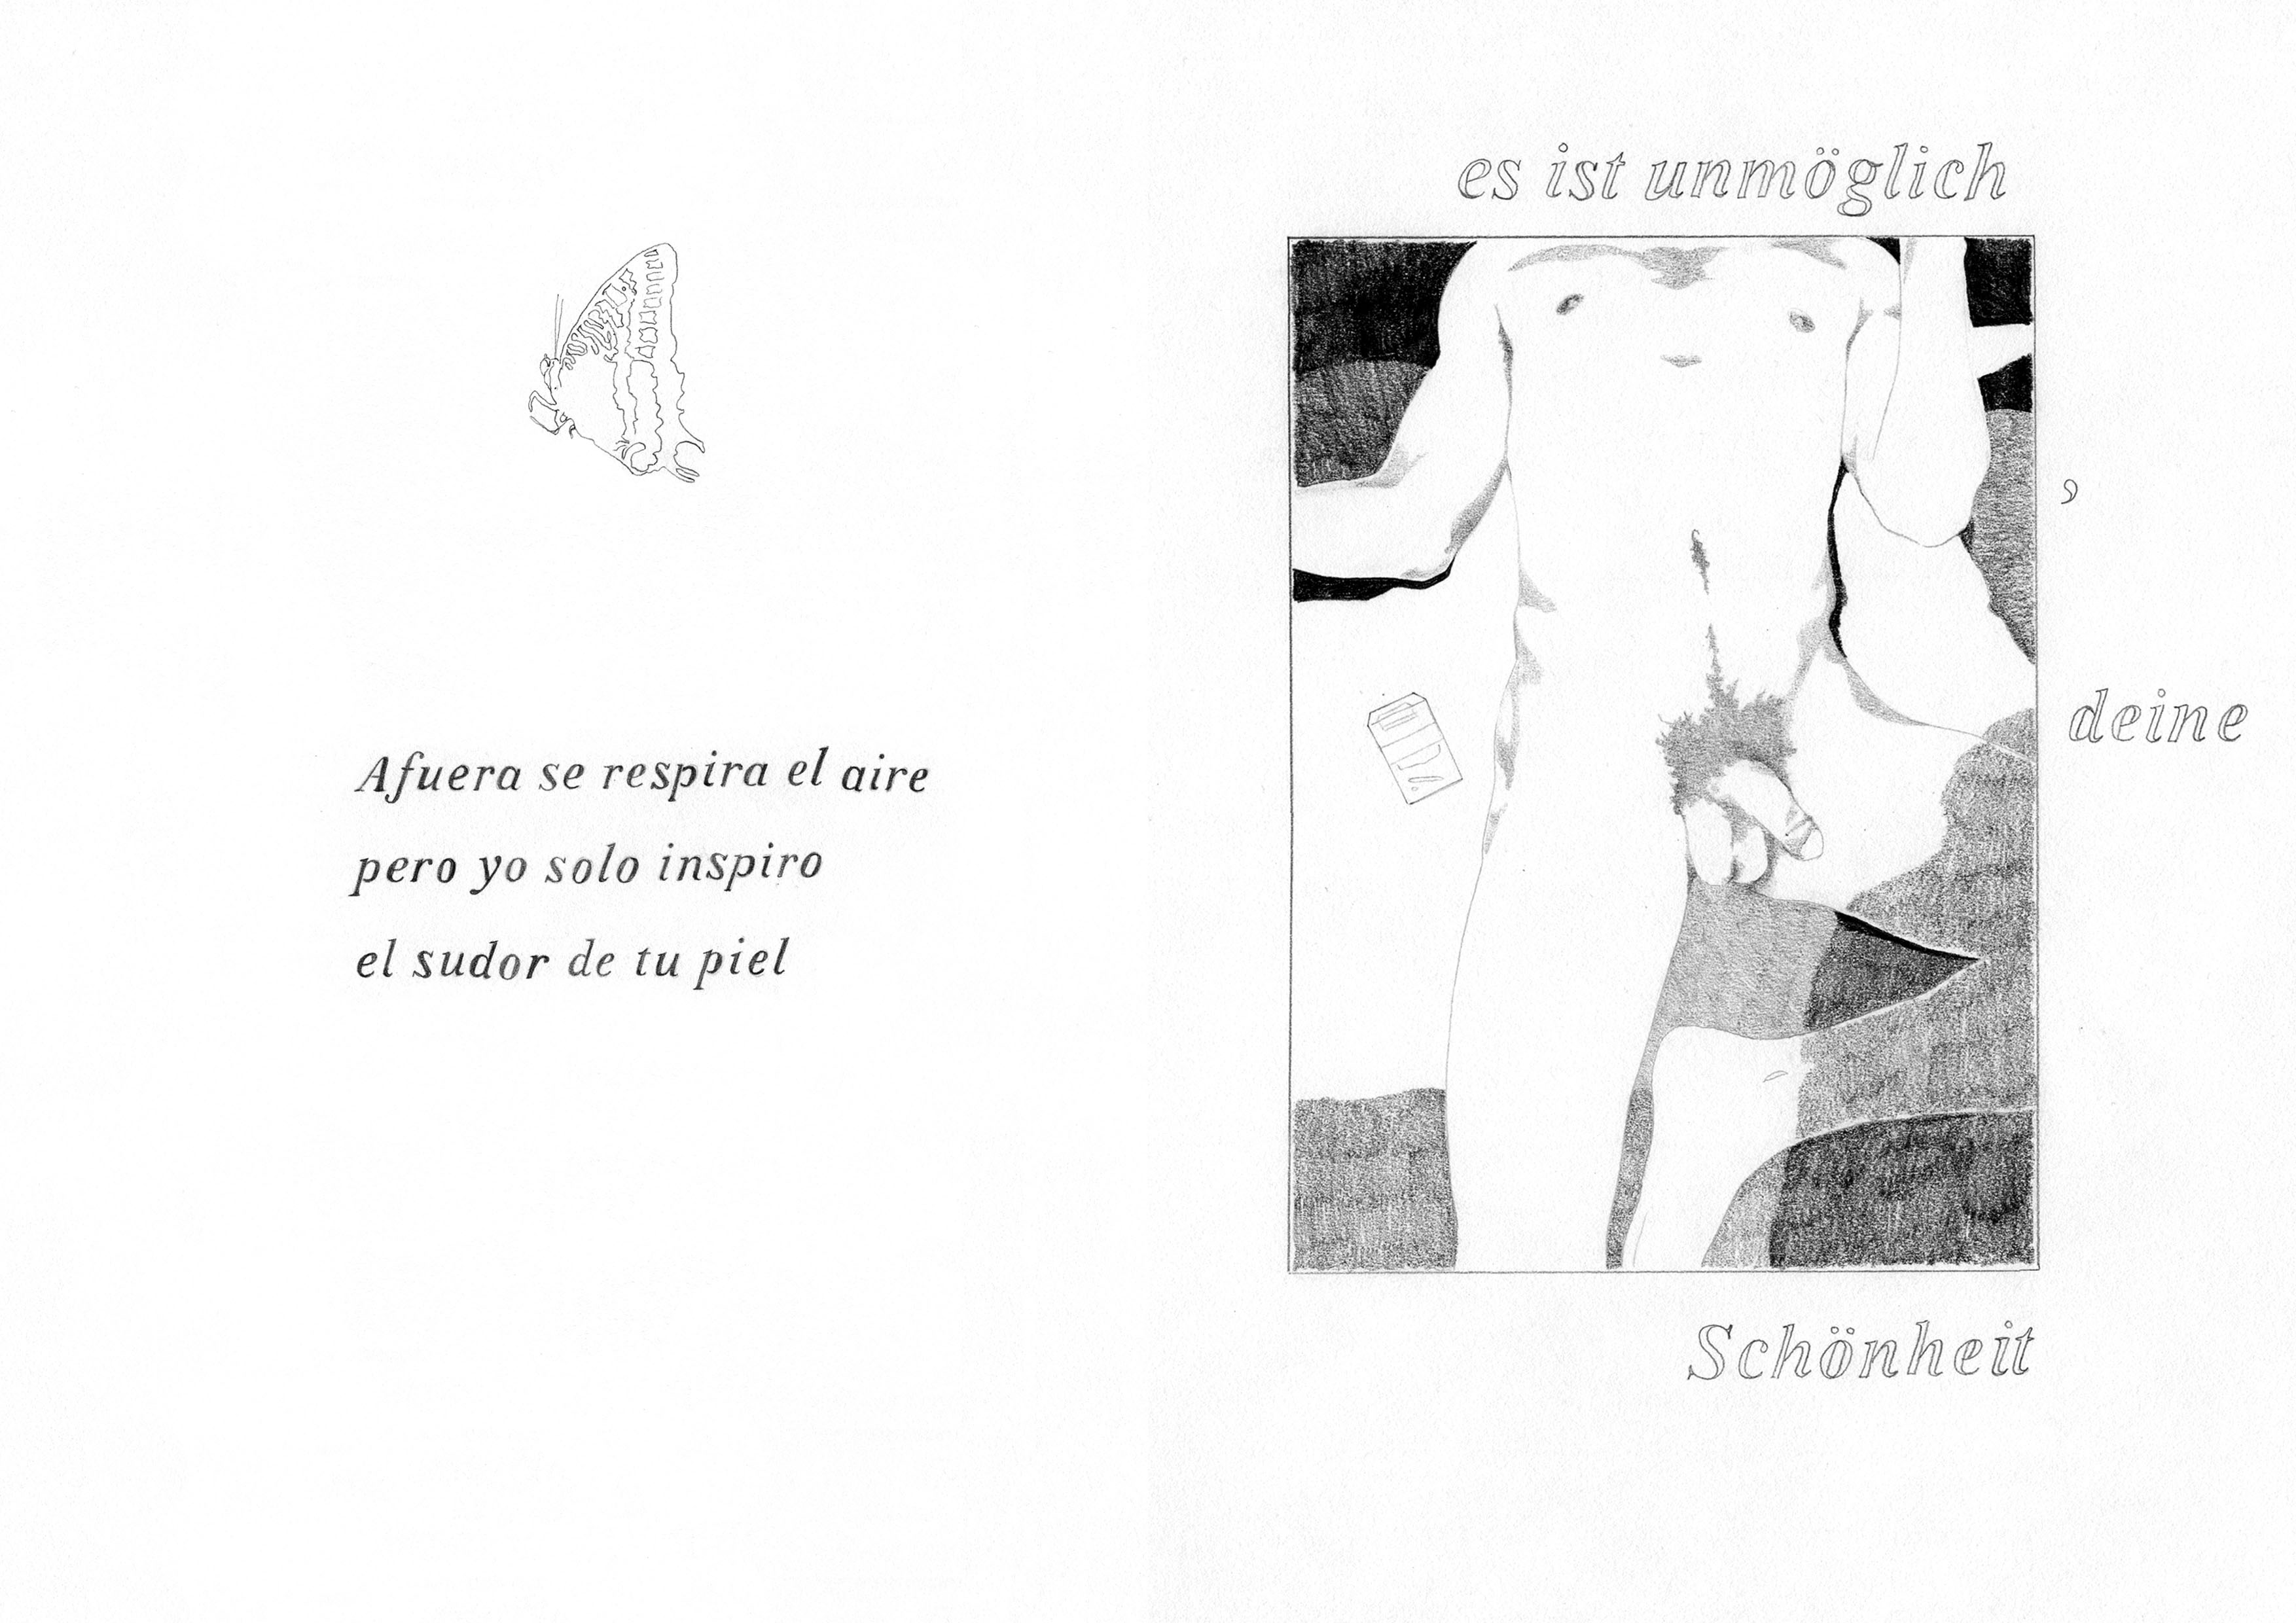 Afuera se respira el aire
pero yo solo inspiro
el sudor de tu piel
es ist unmöglich
,
deine
Schönheit